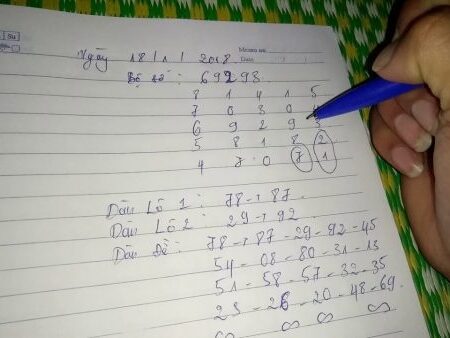 Memo no.
Ngày 18/1/2018
Date
Bộ số : 69298
8 1 4 1 5
7 0 3 0
6 9 2 9 3
5 8 1 8 2
4 7 0 7 1
Dàn Lô 1 : 78 → 87.
Dàn Lô 2 : 29 → 92
Dàn Đề : 78 → 87 - 29 - 92 - 45
54 - 08 - 80 - 31 - 13
51 - 58 - 57 - 32 - 35
23 - 26 - 20 - 48 - 69.
∞ ∞ ∞ ∞